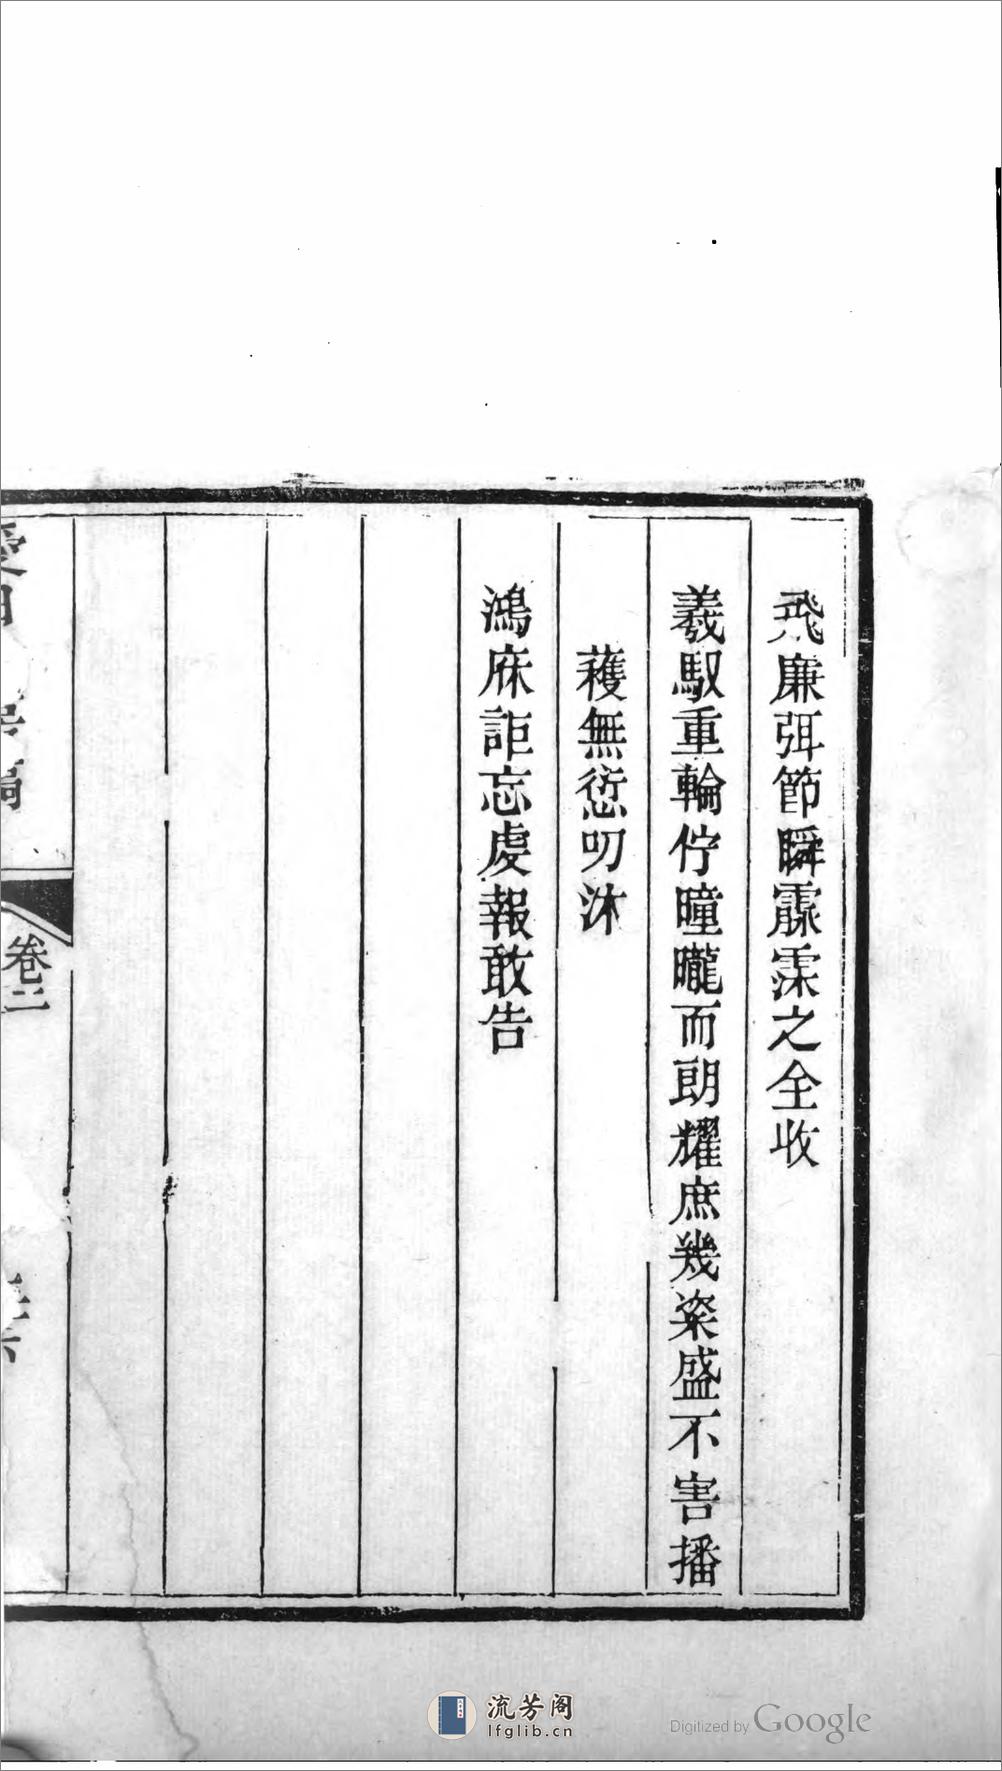 飛廉弭節瞬霢霂之全收
羲馭重輪佇曈曨而朗耀庶幾粢盛不害播
穫無愆叨沐
鴻庥詎忘虔報敢告
卷二
流芳阁
lfglib.cn
Digitized by Google